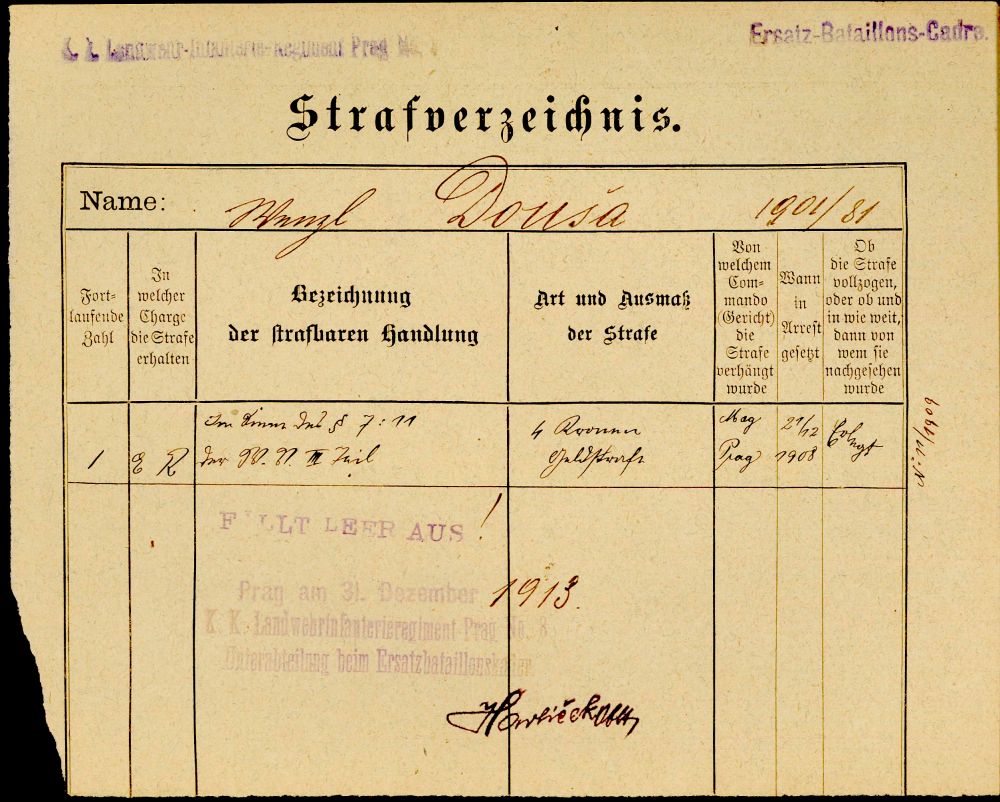 K. k. Landwehr-Infanterie-Regiment Prag No.
Ersatz-Bataillons-Cadre.
Strafverzeichnis.
Name: Wenzl Dousa 1901/31
Fort-
laufende
Zahl
In
welcher
Charge
die Strafe
erhalten
Bezeichnung
der strafbaren Handlung
Art und Ausmaß
der Strafe
Von
welchem
Com-
mando
(Gericht)
die
Strafe
verhängt
wurde
Wann
in
Arrest
gesetzt
Ob
die Strafe
vollzogen,
oder ob und
in wie weit,
dann von
wem sie
nachgesehen
wurde
Im Sinne des § 7:11
1 E R der W. V. II Teil
4 Kronen
Geldstrafe
Mag
Prag
21/12
1908
N: 11/1909
FÄLLT LEER AUS !
Prag am 31. Dezember 1913.
K. K. Landwehrinfanterieregiment Prag No. 8
Unterabteilung beim Ersatzbataillonskader.